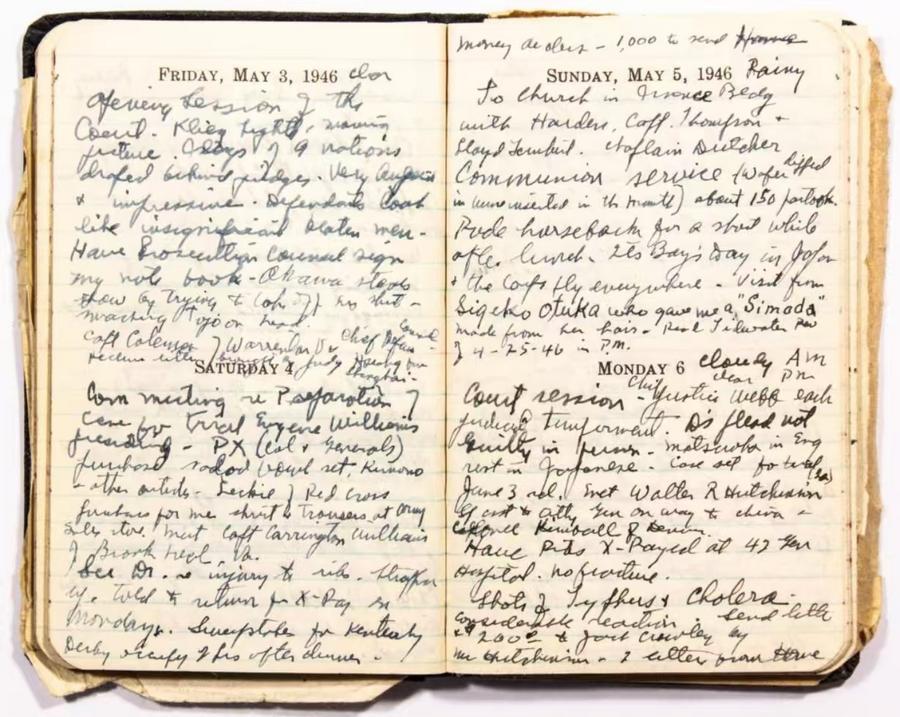 FRIDAY, MAY 3, 1946 clear
Opening Session of the
Court. Klieg lights, moving
picture. Flags of 9 nations
draped behind judges. Very august
& impressive. Defendants look
like insignificant beaten men.
Have Prosecution Counsel sign
my note book - Okawa stops
show by trying to take off his shirt -
smacking Tojo on head.
Capt Coleman of Warrenton Va Chief Defense Counsel
SATURDAY 4
Com meeting re Preparation of
case for trial Eugene Williams
presiding - PX (Col & Generals)
purchase salad bowl set, Kimono
& other articles. Leckie of Red Cross
purchases for me shirt & trousers at Army
Sales store. Meet Capt Carrington Williams
of Brook Va.
See Dr. re injury to rib.
Told to return for X-Ray on
Monday. Sweepstakes for Kentucky
Derby after dinner -
money order - 1,000 to send Home
SUNDAY, MAY 5, 1946 Rainy
To church in Bldg
with Harders, Capt. Thompson &
Lloyd Chaplain Dutcher
Communion service (wafer dipped
in wine inserted in the mouth) about 150 partook.
Rode horseback for a short while
after lunch - Its Boy's Day in Japan
& the Carps fly everywhere - Visit from
Sigeko Otuka who gave me a "Simada"
made from her hair - Read Tidewater Rev
of 4-25-46 in P.M.
MONDAY 6 cloudy AM
clear PM
Court session - Chief Justice Webb each
judicial temperament. D's plead not
guilty in person - Matsuoka in Eng
rest in Japanese - Case set for trial
June 3rd. Met Walter R Hutchinson
Asst to Atty Gen on way to China -
Colonel Kimball
Have Ribs X-Rayed at 42 Gen
Hospital. No fracture.
Shots of Typhus & Cholera -
considerable reaction - Send letter
& 200 to Jack Crowley by
Mr Hutchinson - 2 letters from Home